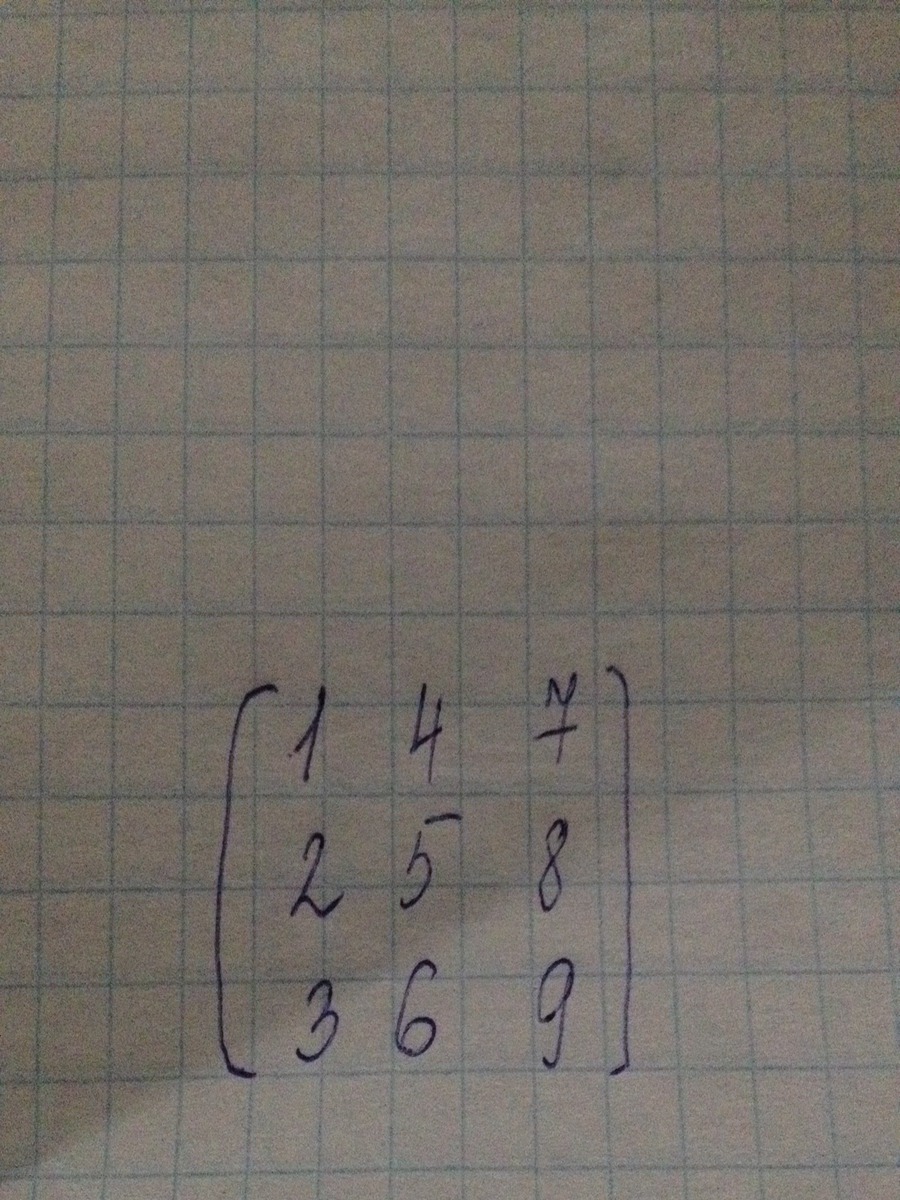 1 4 7
2 5 8
3 6 9